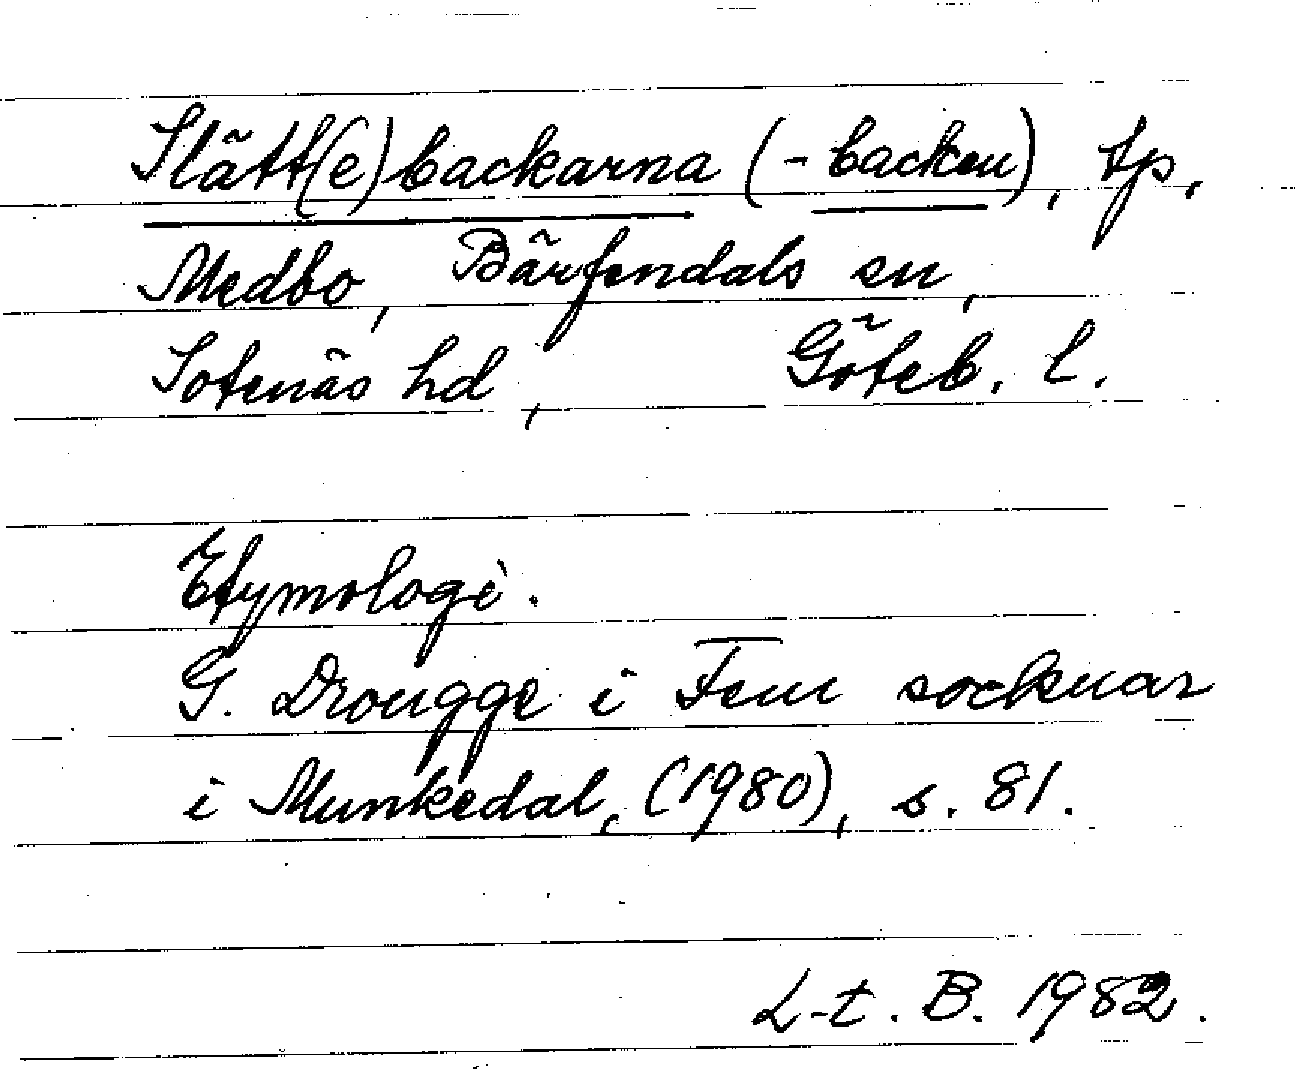 Slätt(e)backarna (-backen), tp,
Medbo, Bärfendals sn,
Sotenäs hd, Göteb. l.
Etymologi.
G. Drougge i Fem socknar
i Munkedal, (1980), s. 81.
L-t. B. 1982.